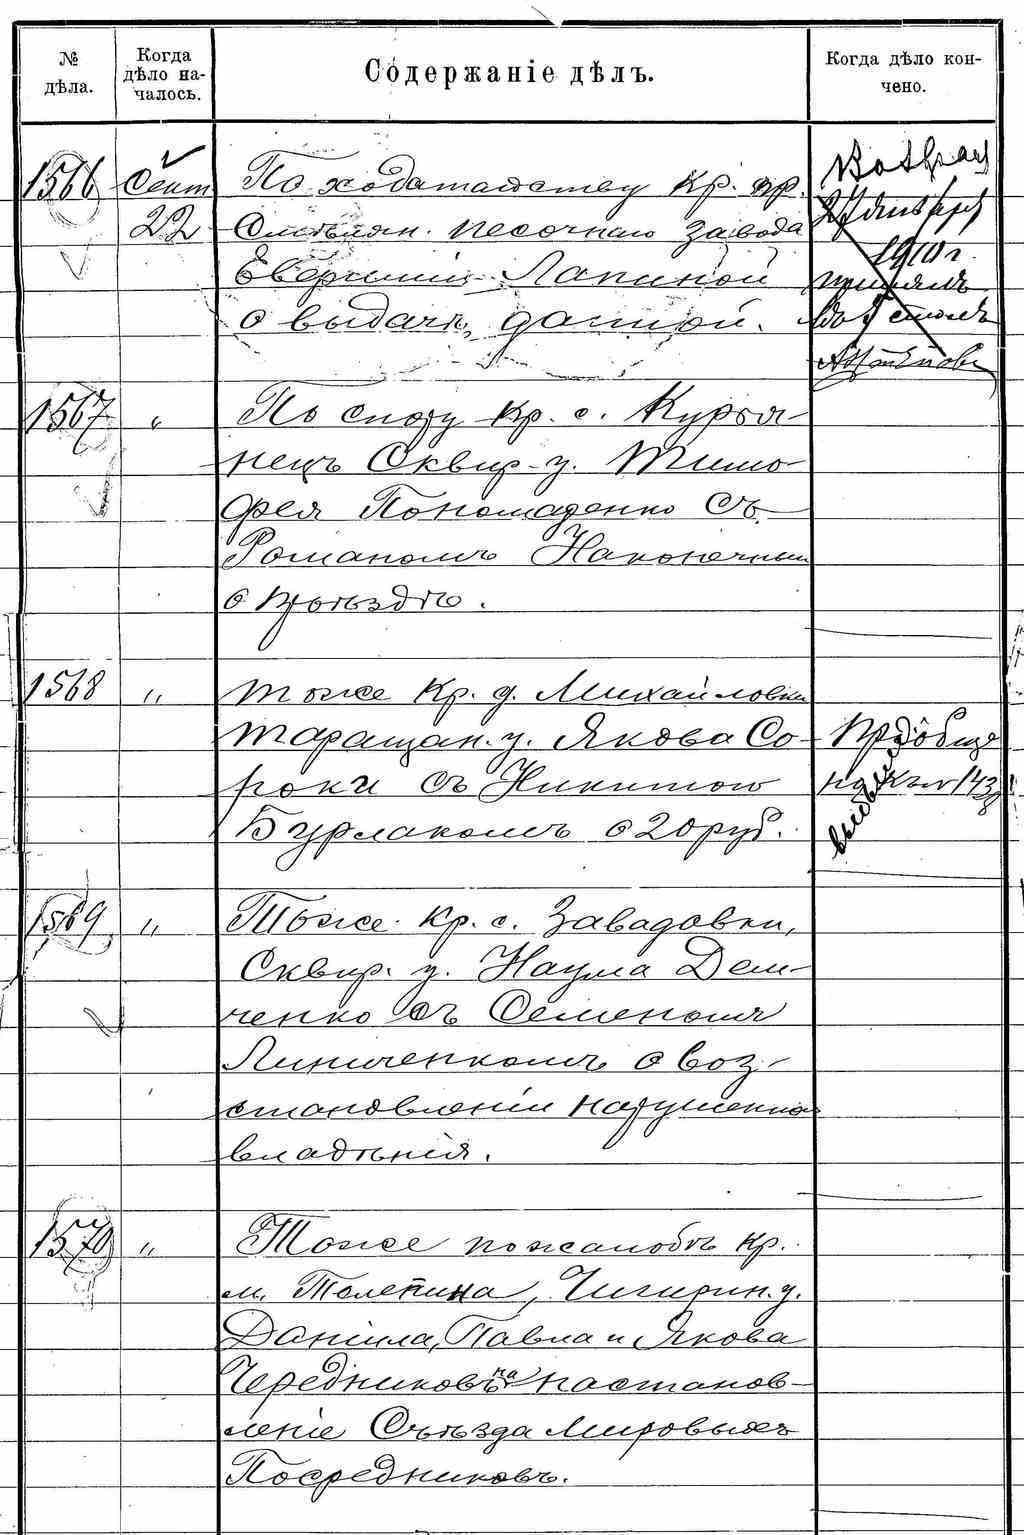 № дѣла.
Когда дѣло на-
чалось.
Содержаніе дѣлъ.
Когда дѣло кон-
чено.
1566
Сент
22
По ходатайству Кр. пр.
песочнаго завода
Лапиной
о выдачѣ данной.
27 января
1910 г.
принялъ
столъ
1567
"
По спору Кр. с. Курья-
нецъ Сквир. у. Тимо-
фея Пономаренко съ
Романомъ Наконечным
о проѣздѣ.
1568
"
Тоже Кр. д. Михайловки
Таращан. у. Якова Со-
роки съ Никитою
Бурлакомъ о 20 руб.
Пріобще
но къ № 1438
1569
"
Тоже Кр. с. Завадовки,
Сквир. у. Наума Дем-
ченко съ Семеномъ
Линиченкомъ о воз-
становленіи нарушеннаго
владѣнія.
1570
"
Тоже по жалобѣ Кр.
м. Телепина, Чигирин. у.
Даніила, Павла и Якова
Чередниковъ на постанов-
леніе Съѣзда Мировыхъ
Посредниковъ.